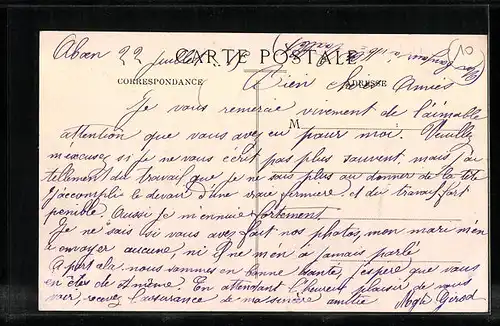 22 Juillet
CARTE POSTALE
CORRESPONDANCE ADRESSE
Bien chères Amies
Je vous remercie vivement de l'aimable
M
attention que vous avez eu pour moi. Veuillez
m'excuser si je ne vous écrit pas plus souvent, mais j'ai
tellement du travail que je ne sais plus ou donner de la tête
J'accompli le devoir d'une vraie fermière et du travail fort
penible. Aussi je m'ennuie fortement
Je ne sais si vous avez fait nos photos, mon mari m'en
a envoyer aucune, ni il ne m'en a jamais parlé
A part ala nous sommes en bonne santé, j'espère que vous
en êtes de même. En attendant l'heureux plaisir de vous
voir, recevez l'assurance de ma sincère amitié Girod
10